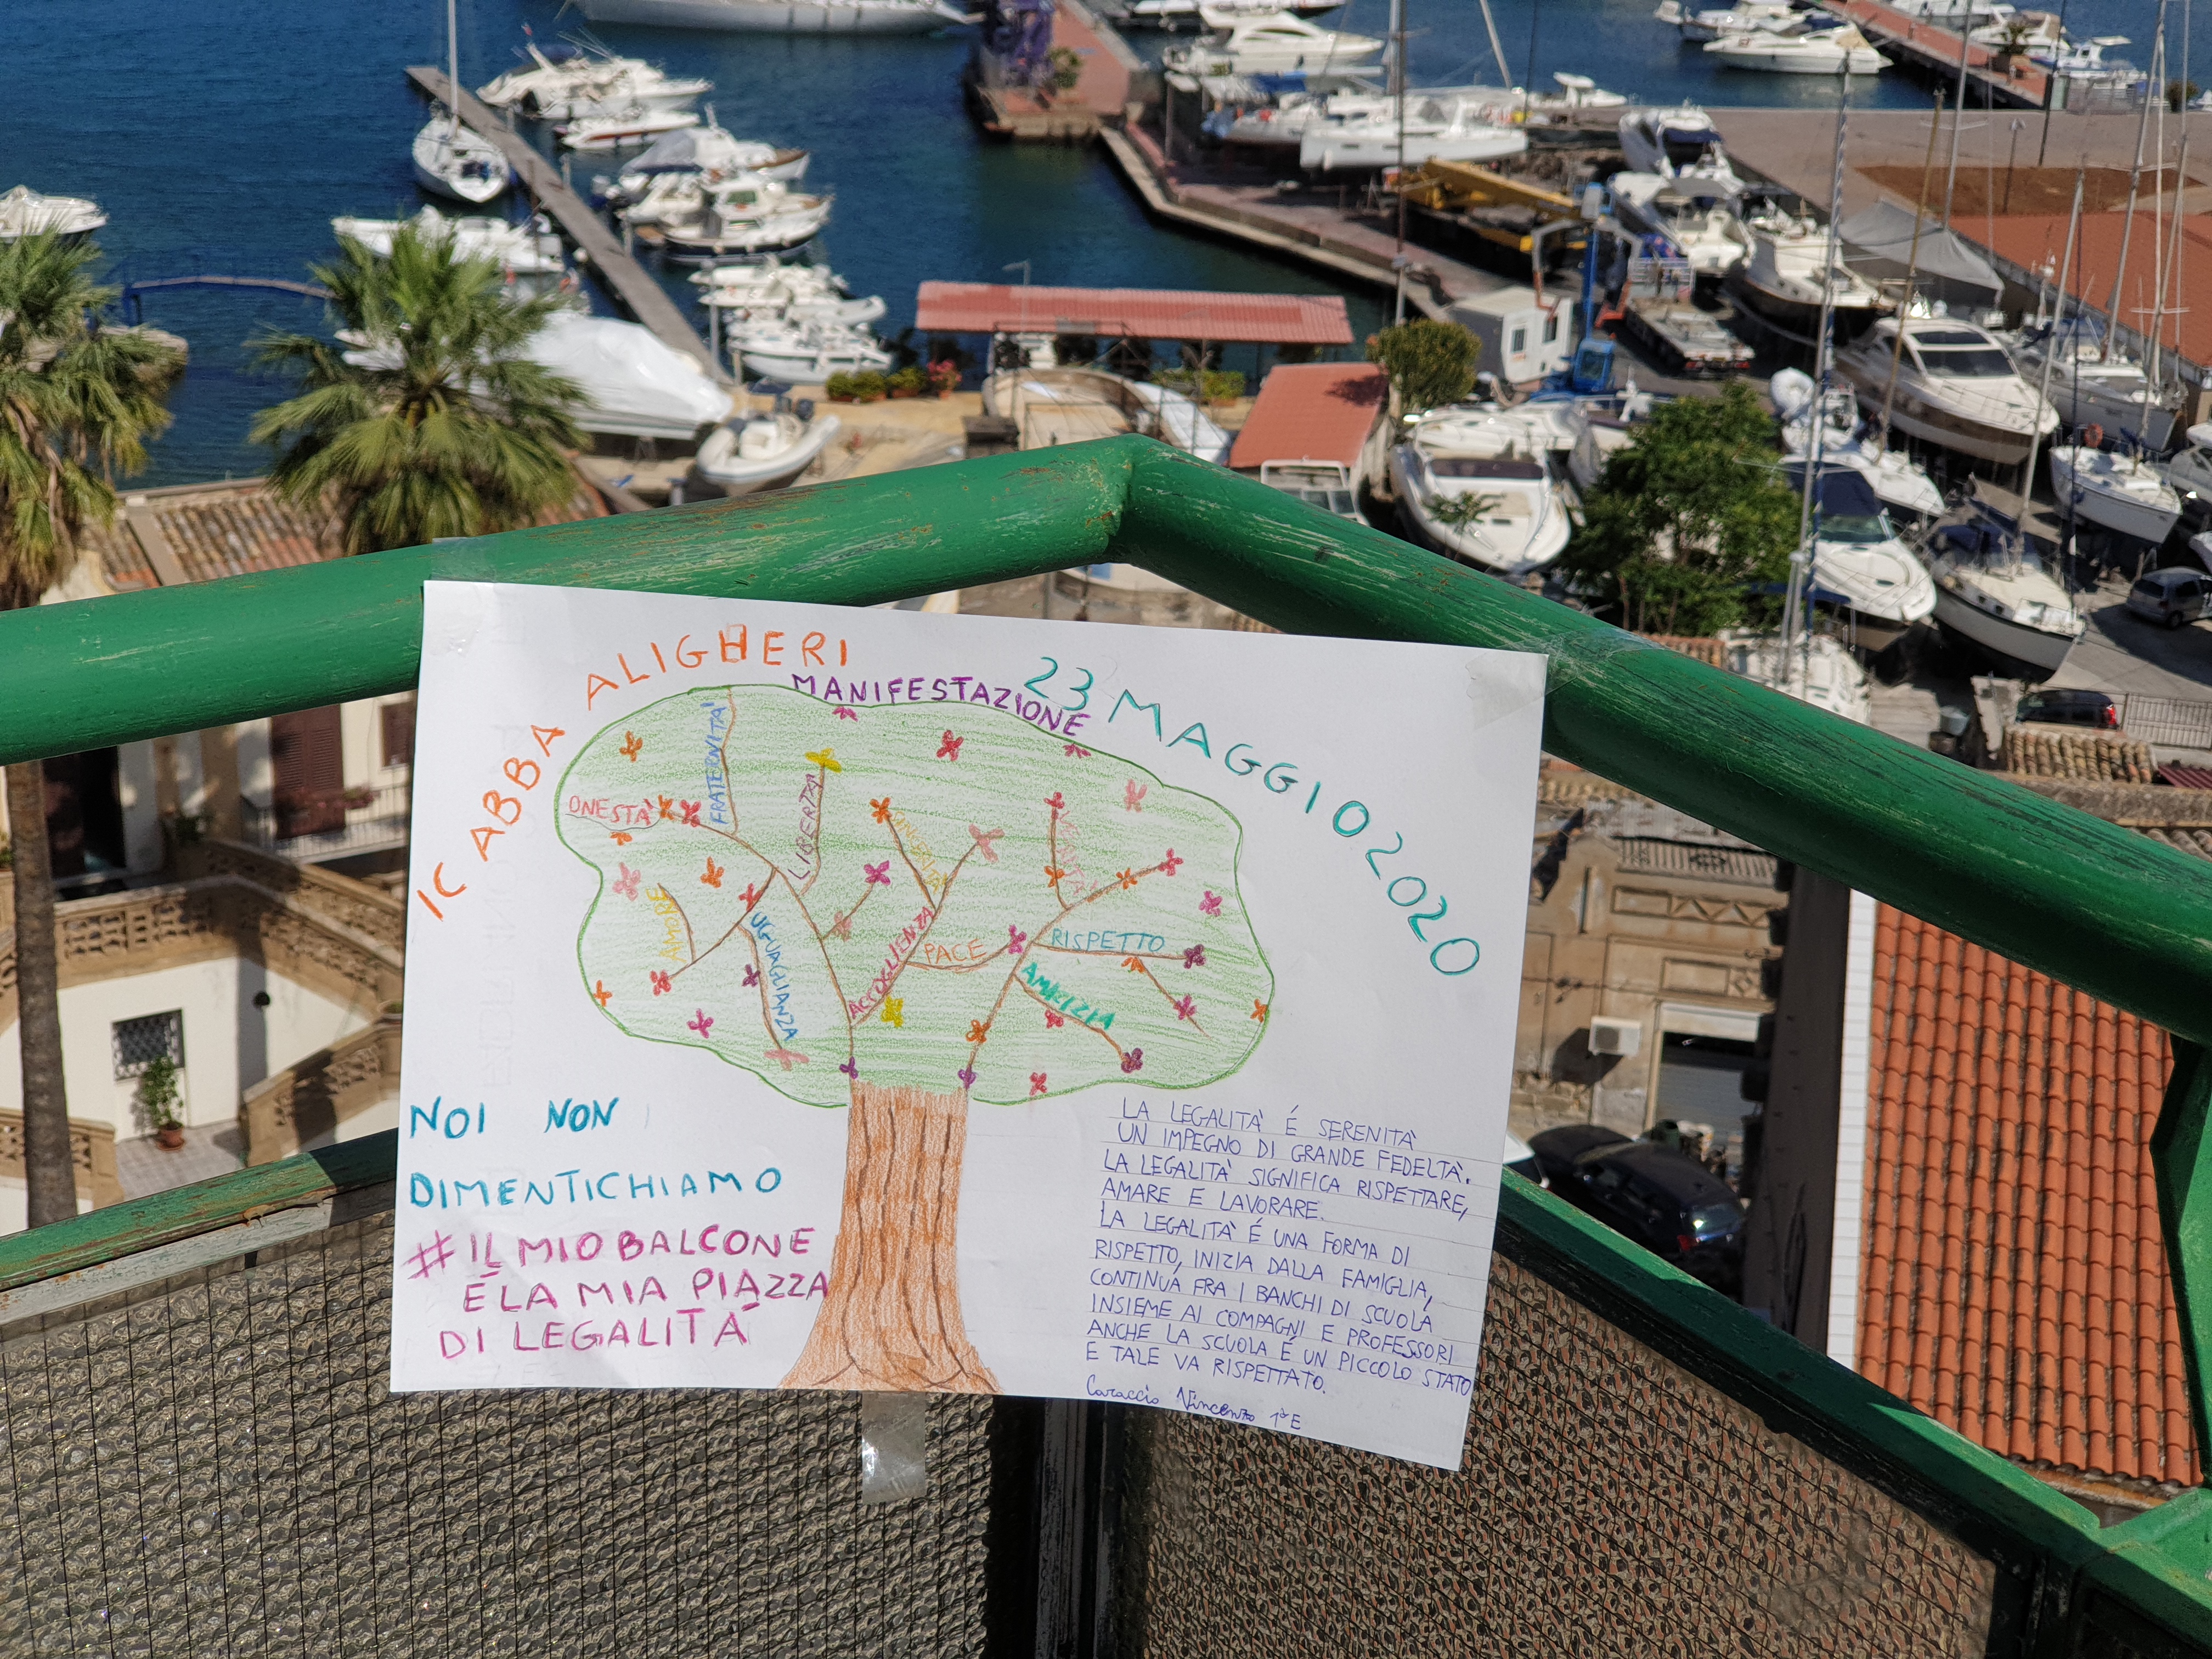 IC ABBA ALIGHERI
MANIFESTAZIONE
23 MAGGIO 2020
FRATERNITA'
ONESTA'
LIBERTA'
GENEROSITA'
AMORE
UGUAGLIANZA
ACCOGLIENZA
PACE
RISPETTO
AMICIZIA
NOI NON
DIMENTICHIAMO
#IL MIO BALCONE
É LA MIA PIAZZA
DI LEGALITÁ
LA LEGALITA' É SERENITA'
UN IMPEGNO DI GRANDE FEDELTA'.
LA LEGALITA' SIGNIFICA RISPETTARE,
AMARE E LAVORARE.
LA LEGALITA' É UNA FORMA DI
RISPETTO, INIZIA DALLA FAMIGLIA,
CONTINUA FRA I BANCHI DI SCUOLA
INSIEME AI COMPAGNI E PROFESSORI
ANCHE LA SCUOLA É UN PICCOLO STATO
E TALE VA RISPETTATO.
Caraccio Vincenzo 1ªE